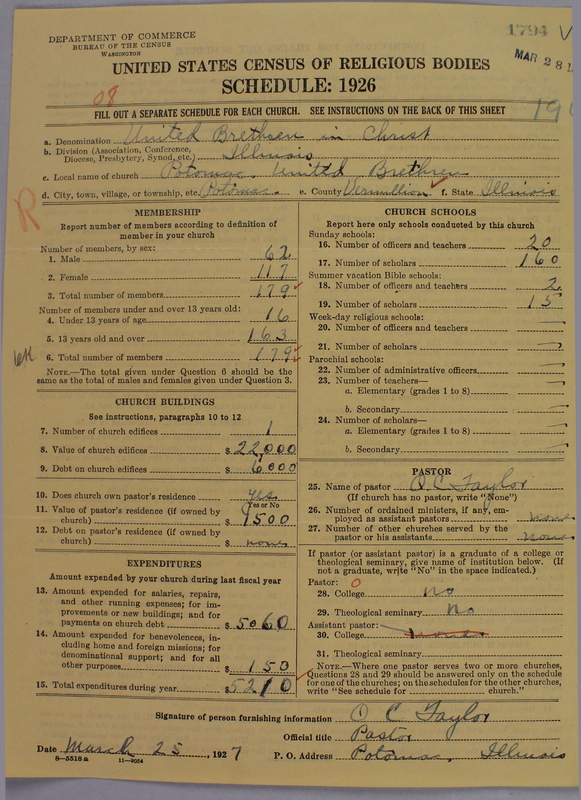 DEPARTMENT OF COMMERCE
BUREAU OF THE CENSUS
WASHINGTON
1794
MAR 28
UNITED STATES CENSUS OF RELIGIOUS BODIES
SCHEDULE: 1926
08
FILL OUT A SEPARATE SCHEDULE FOR EACH CHURCH. SEE INSTRUCTIONS ON THE BACK OF THIS SHEET
a. Denomination United Brethren in Christ
b. Division (Association, Conference, Diocese, Presbytery, Synod, etc.) Illinois
c. Local name of church Potomac, United Brethren
d. City, town, village, or township, etc. Potomac. e. County Vermillion f. State Illinois
R
MEMBERSHIP
Report number of members according to definition of
member in your church
Number of members, by sex:
1. Male 62
2. Female 117
3. Total number of members 179
Number of members under and over 13 years old:
4. Under 13 years of age 16
5. 13 years old and over 163
6. Total number of members 179
NOTE.—The total given under Question 6 should be
same as the total of males and females given under Question 3.
CHURCH BUILDINGS
See instructions, paragraphs 10 to 12
7. Number of church edifices 1
8. Value of church edifices $ 22,000
9. Debt on church edifices $ 6,000
10. Does church own pastor's residence yes
(Yes or No)
11. Value of pastor's residence (if owned by
church) $ 1500
12. Debt on pastor's residence (if owned by
church) $ none
EXPENDITURES
Amount expended by your church during last fiscal year
13. Amount expended for salaries, repairs,
and other running expenses; for im-
provements or new buildings; and for
payments on church debt $ 5060
14. Amount expended for benevolences, in-
cluding home and foreign missions; for
denominational support; and for all
other purposes $ 150
15. Total expenditures during year $ 5210
CHURCH SCHOOLS
Report here only schools conducted by this church
Sunday schools:
16. Number of officers and teachers 20
17. Number of scholars 160
Summer vacation Bible schools:
18. Number of officers and teachers 2
19. Number of scholars 15
Week-day religious schools:
20. Number of officers and teachers —
21. Number of scholars —
Parochial schools:
22. Number of administrative officers —
23. Number of teachers—
a. Elementary (grades 1 to 8) —
b. Secondary —
24. Number of scholars—
a. Elementary (grades 1 to 8) —
b. Secondary —
PASTOR
25. Name of pastor O. C. Taylor
(If church has no pastor, write "None")
26. Number of ordained ministers, if any, em-
ployed as assistant pastors none
27. Number of other churches served by the
pastor or his assistants none
If pastor (or assistant pastor) is a graduate of a college or
theological seminary, give name of institution below. (If
not a graduate, write "No" in the space indicated.)
Pastor: 0
28. College no
29. Theological seminary No
Assistant pastor:
30. College none
31. Theological seminary
NOTE.—Where one pastor serves two or more churches,
Questions 28 and 29 should be answered only on the schedule
for one of the churches; on the schedules for the other churches,
write "See schedule for church."
Signature of person furnishing information O C Taylor
Official title Pastor
Date March 25, 1927 P. O. Address Potomac, Illinois
8—5518 a 11—9034